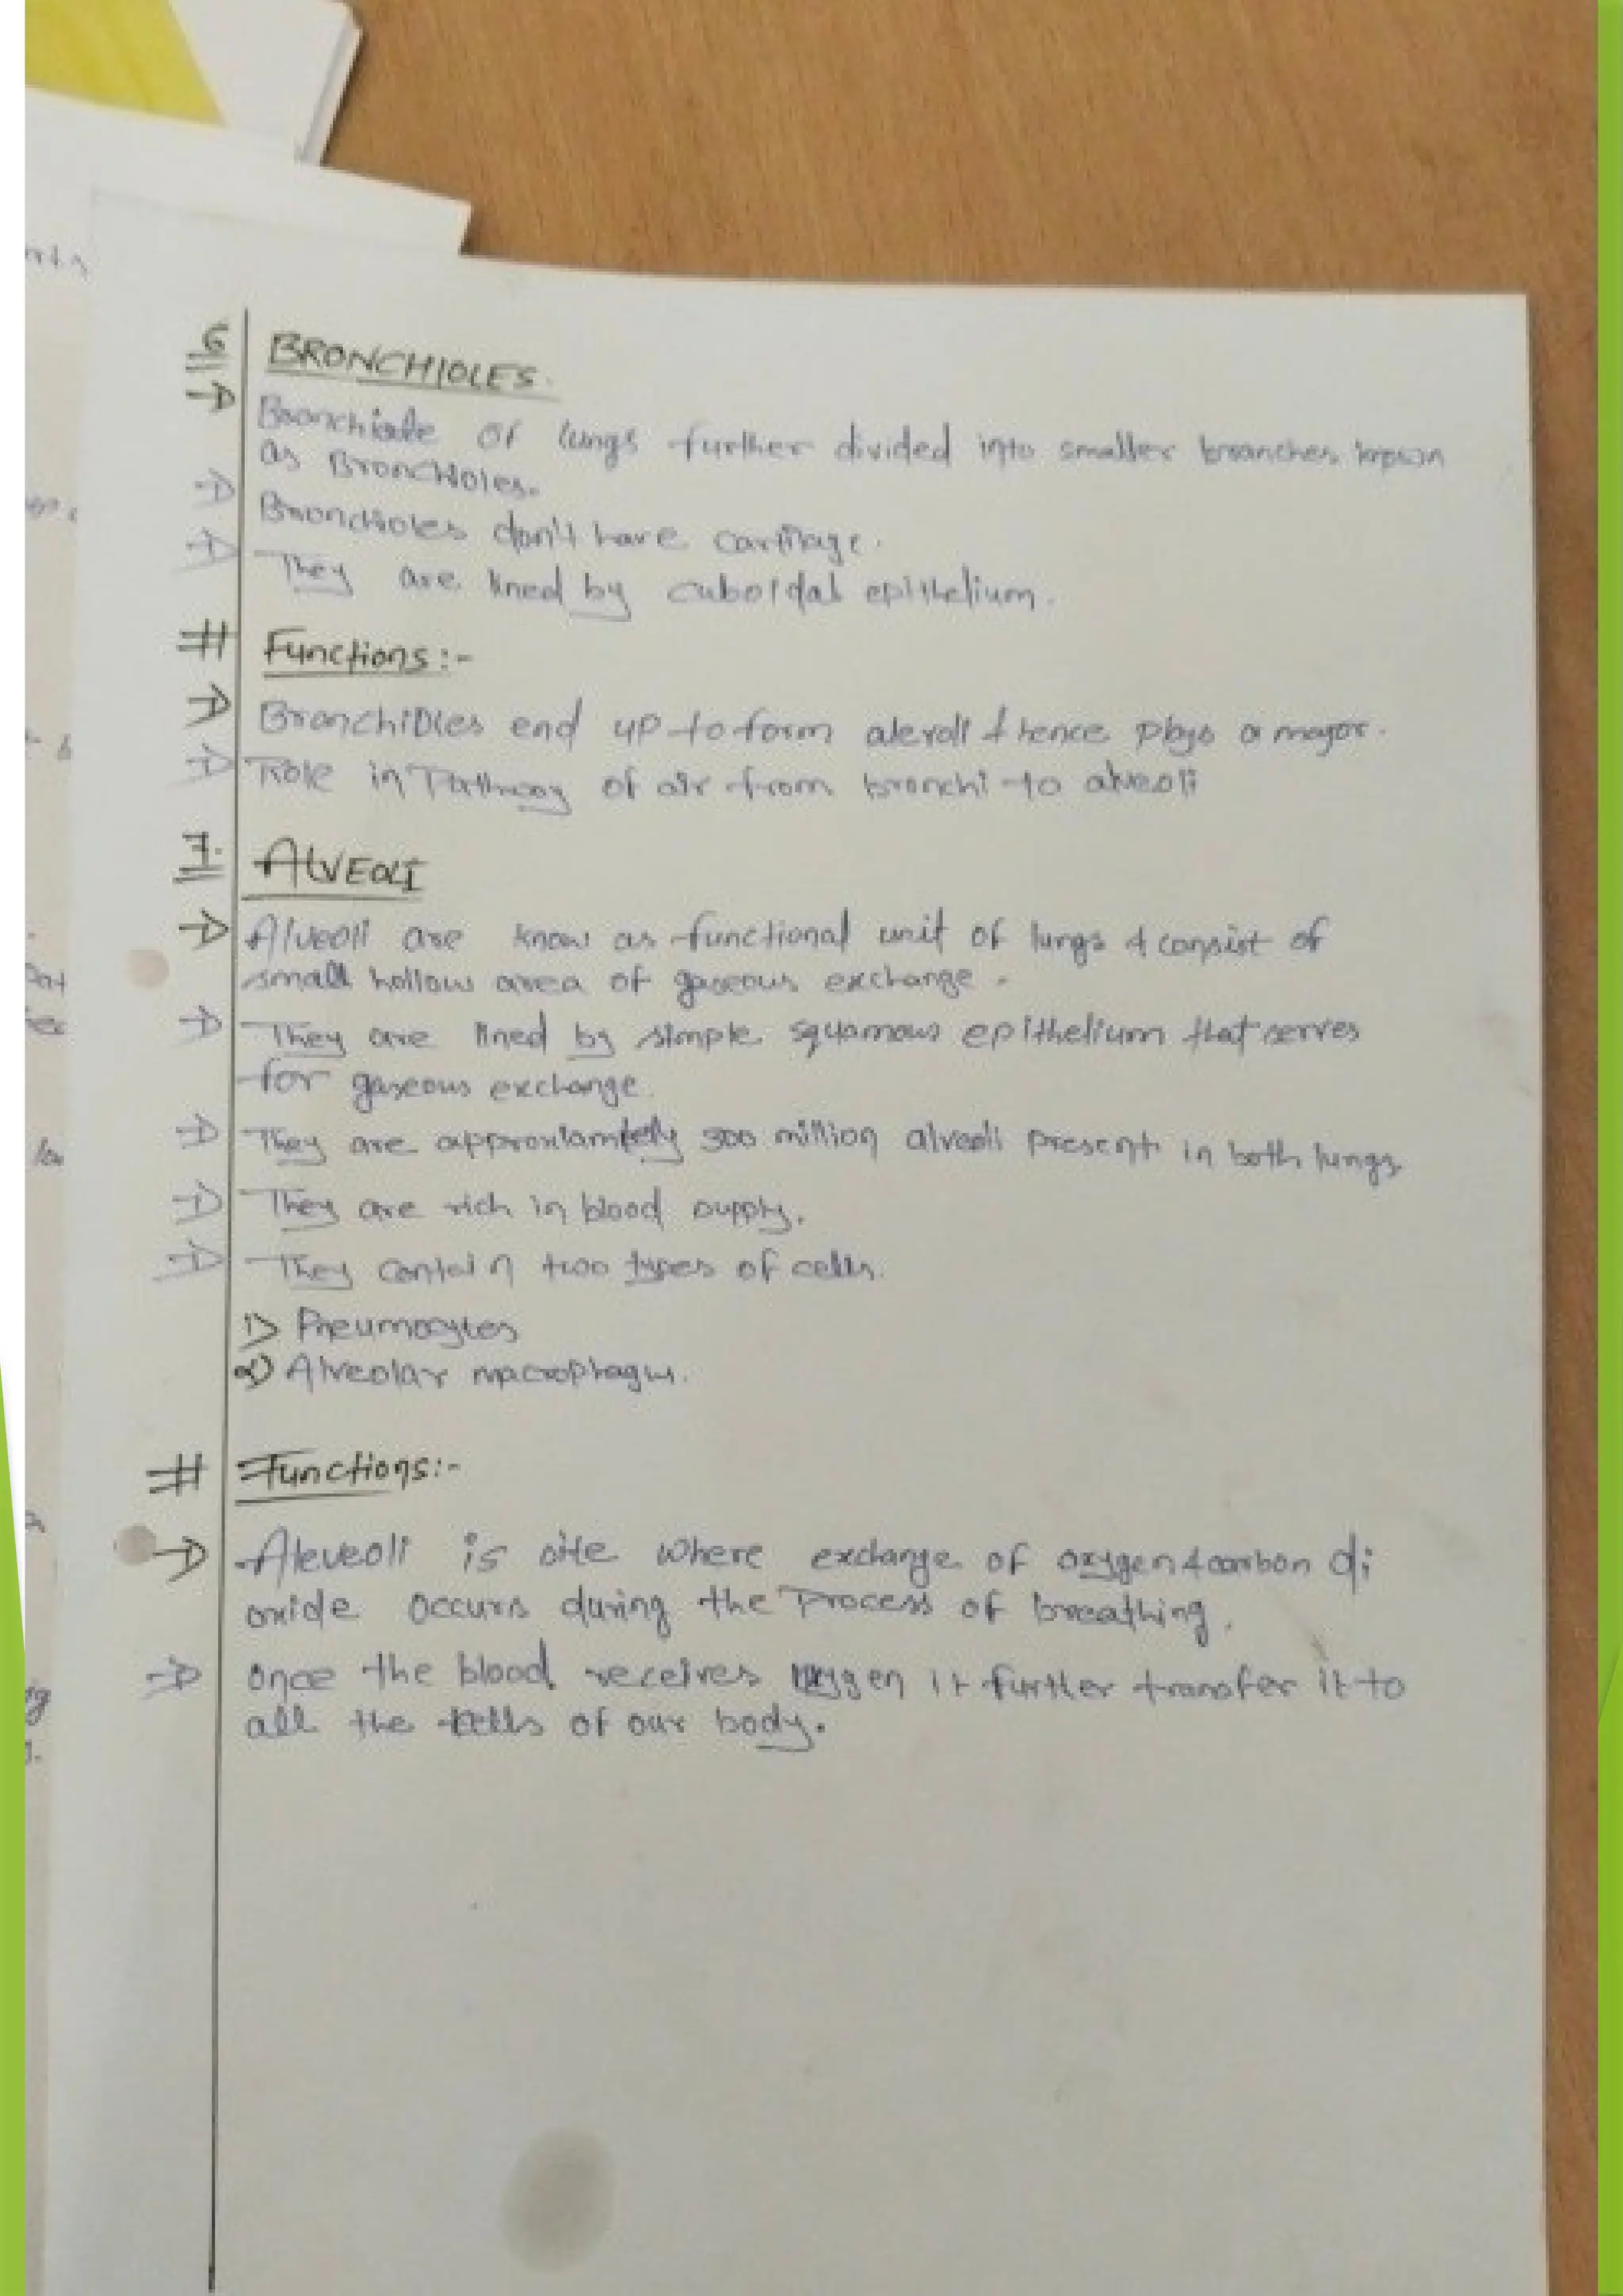 6 BRONCHIOLES.
→ Bronchiole of lungs further divided into smaller branches known
as Bronchioles.
→ Bronchioles don't have cartilage.
→ They are lined by cuboidal epithelium.
# Functions:-
→ Bronchioles end up to form alevoli & hence plays a major.
→ Role in Pathway of air from bronchi to alveoli
7. ALVEOLI
→ Alveoli are know as functional unit of lungs & consist of
small hollow area of gaseous exchange.
→ They are lined by simple squamous epithelium that serves
for gaseous exchange.
→ They are approxiamtely 300 million alveoli present in both lungs.
→ They are rich in blood supply.
→ They contain two types of cells.
1) Pneumocytes
2) Alveolar macrophagus.
# Functions:-
→ Aleveoli is site where exchange of oxygen & carbon di
oxide occurs during the Process of breathing.
→ Once the blood receives oxygen it further transfer it to
all the cells of our body.